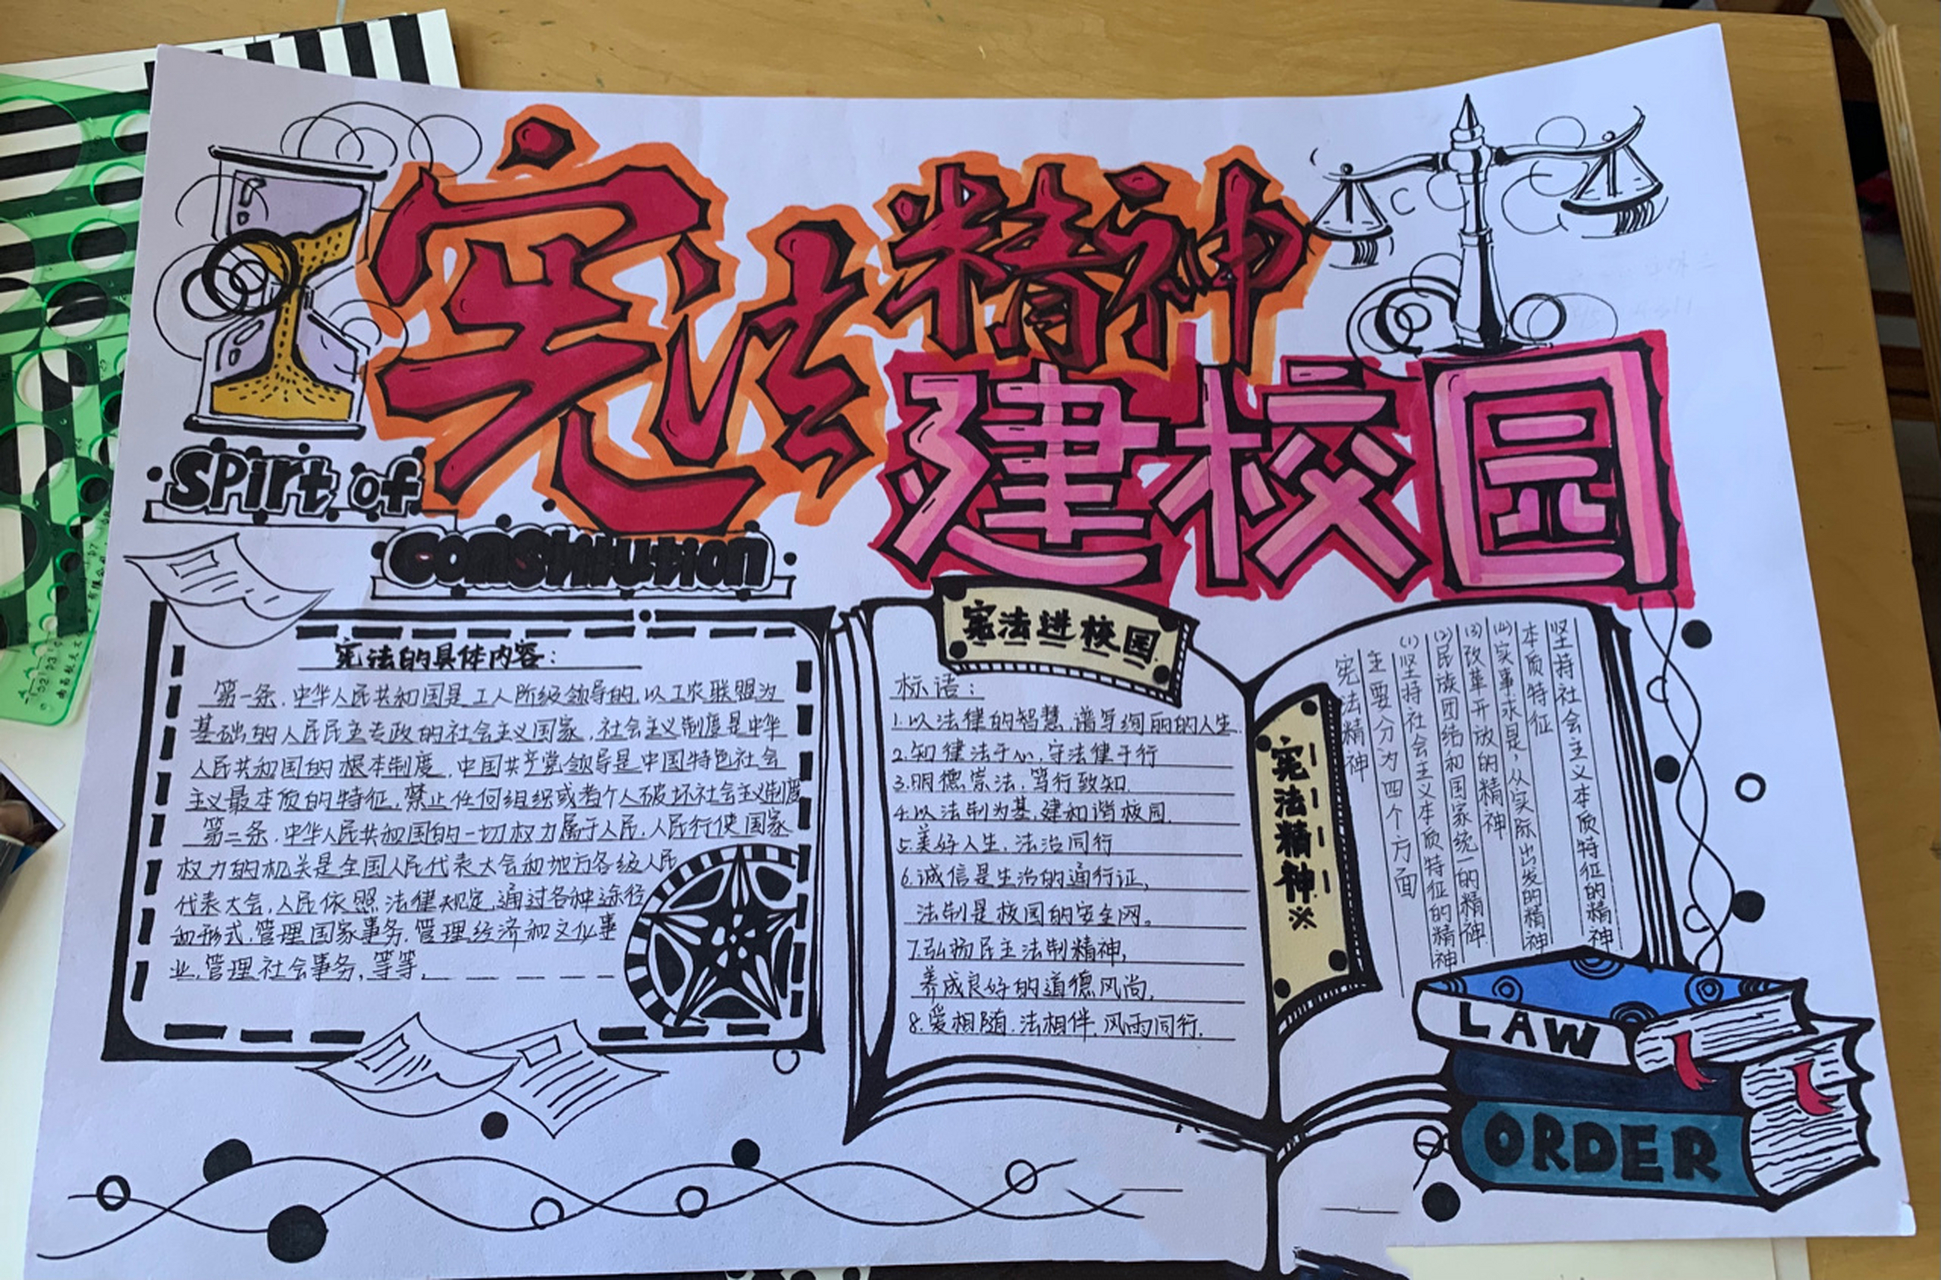 宪法精神
建校园
Spirt of
Comstitution
宪法的具体内容:
第一条,中华人民共和国是工人阶级领导的,以工农联盟为
基础的人民民主专政的社会主义国家,社会主义制度是中华
人民共和国的根本制度,中国共产党领导是中国特色社会
主义最本质的特征,禁止任何组织或者个人破坏社会主义制度
第二条,中华人民共和国的一切权力属于人民,人民行使国家
权力的机关是全国人民代表大会和地方各级人民
代表大会,人民依照法律规定,通过各种途径
和形式,管理国家事务,管理经济和文化事
业,管理社会事务,等等,
宪法进校园
标语:
1.以法律的智慧,谱写绚丽的人生
2.知律法于心,守法律于行
3.明德崇法,笃行致知
4.以法制为基,建和谐校园.
5.美好人生,法治同行
6.诚信是生活的通行证,
法制是校园的安全网。
7.弘扬民主法制精神,
养成良好的道德风尚,
8.爱相随,法相伴,风雨同行.
宪法精神※
宪法精神
主要分为四个方面
(1)坚持社会主义本质特征的精神
(2)民族团结和国家统一的精神
(3)改革开放的精神
(4)实事求是,从实际出发的精神
本质特征
坚持社会主义本质特征的精神
LAW
ORDER